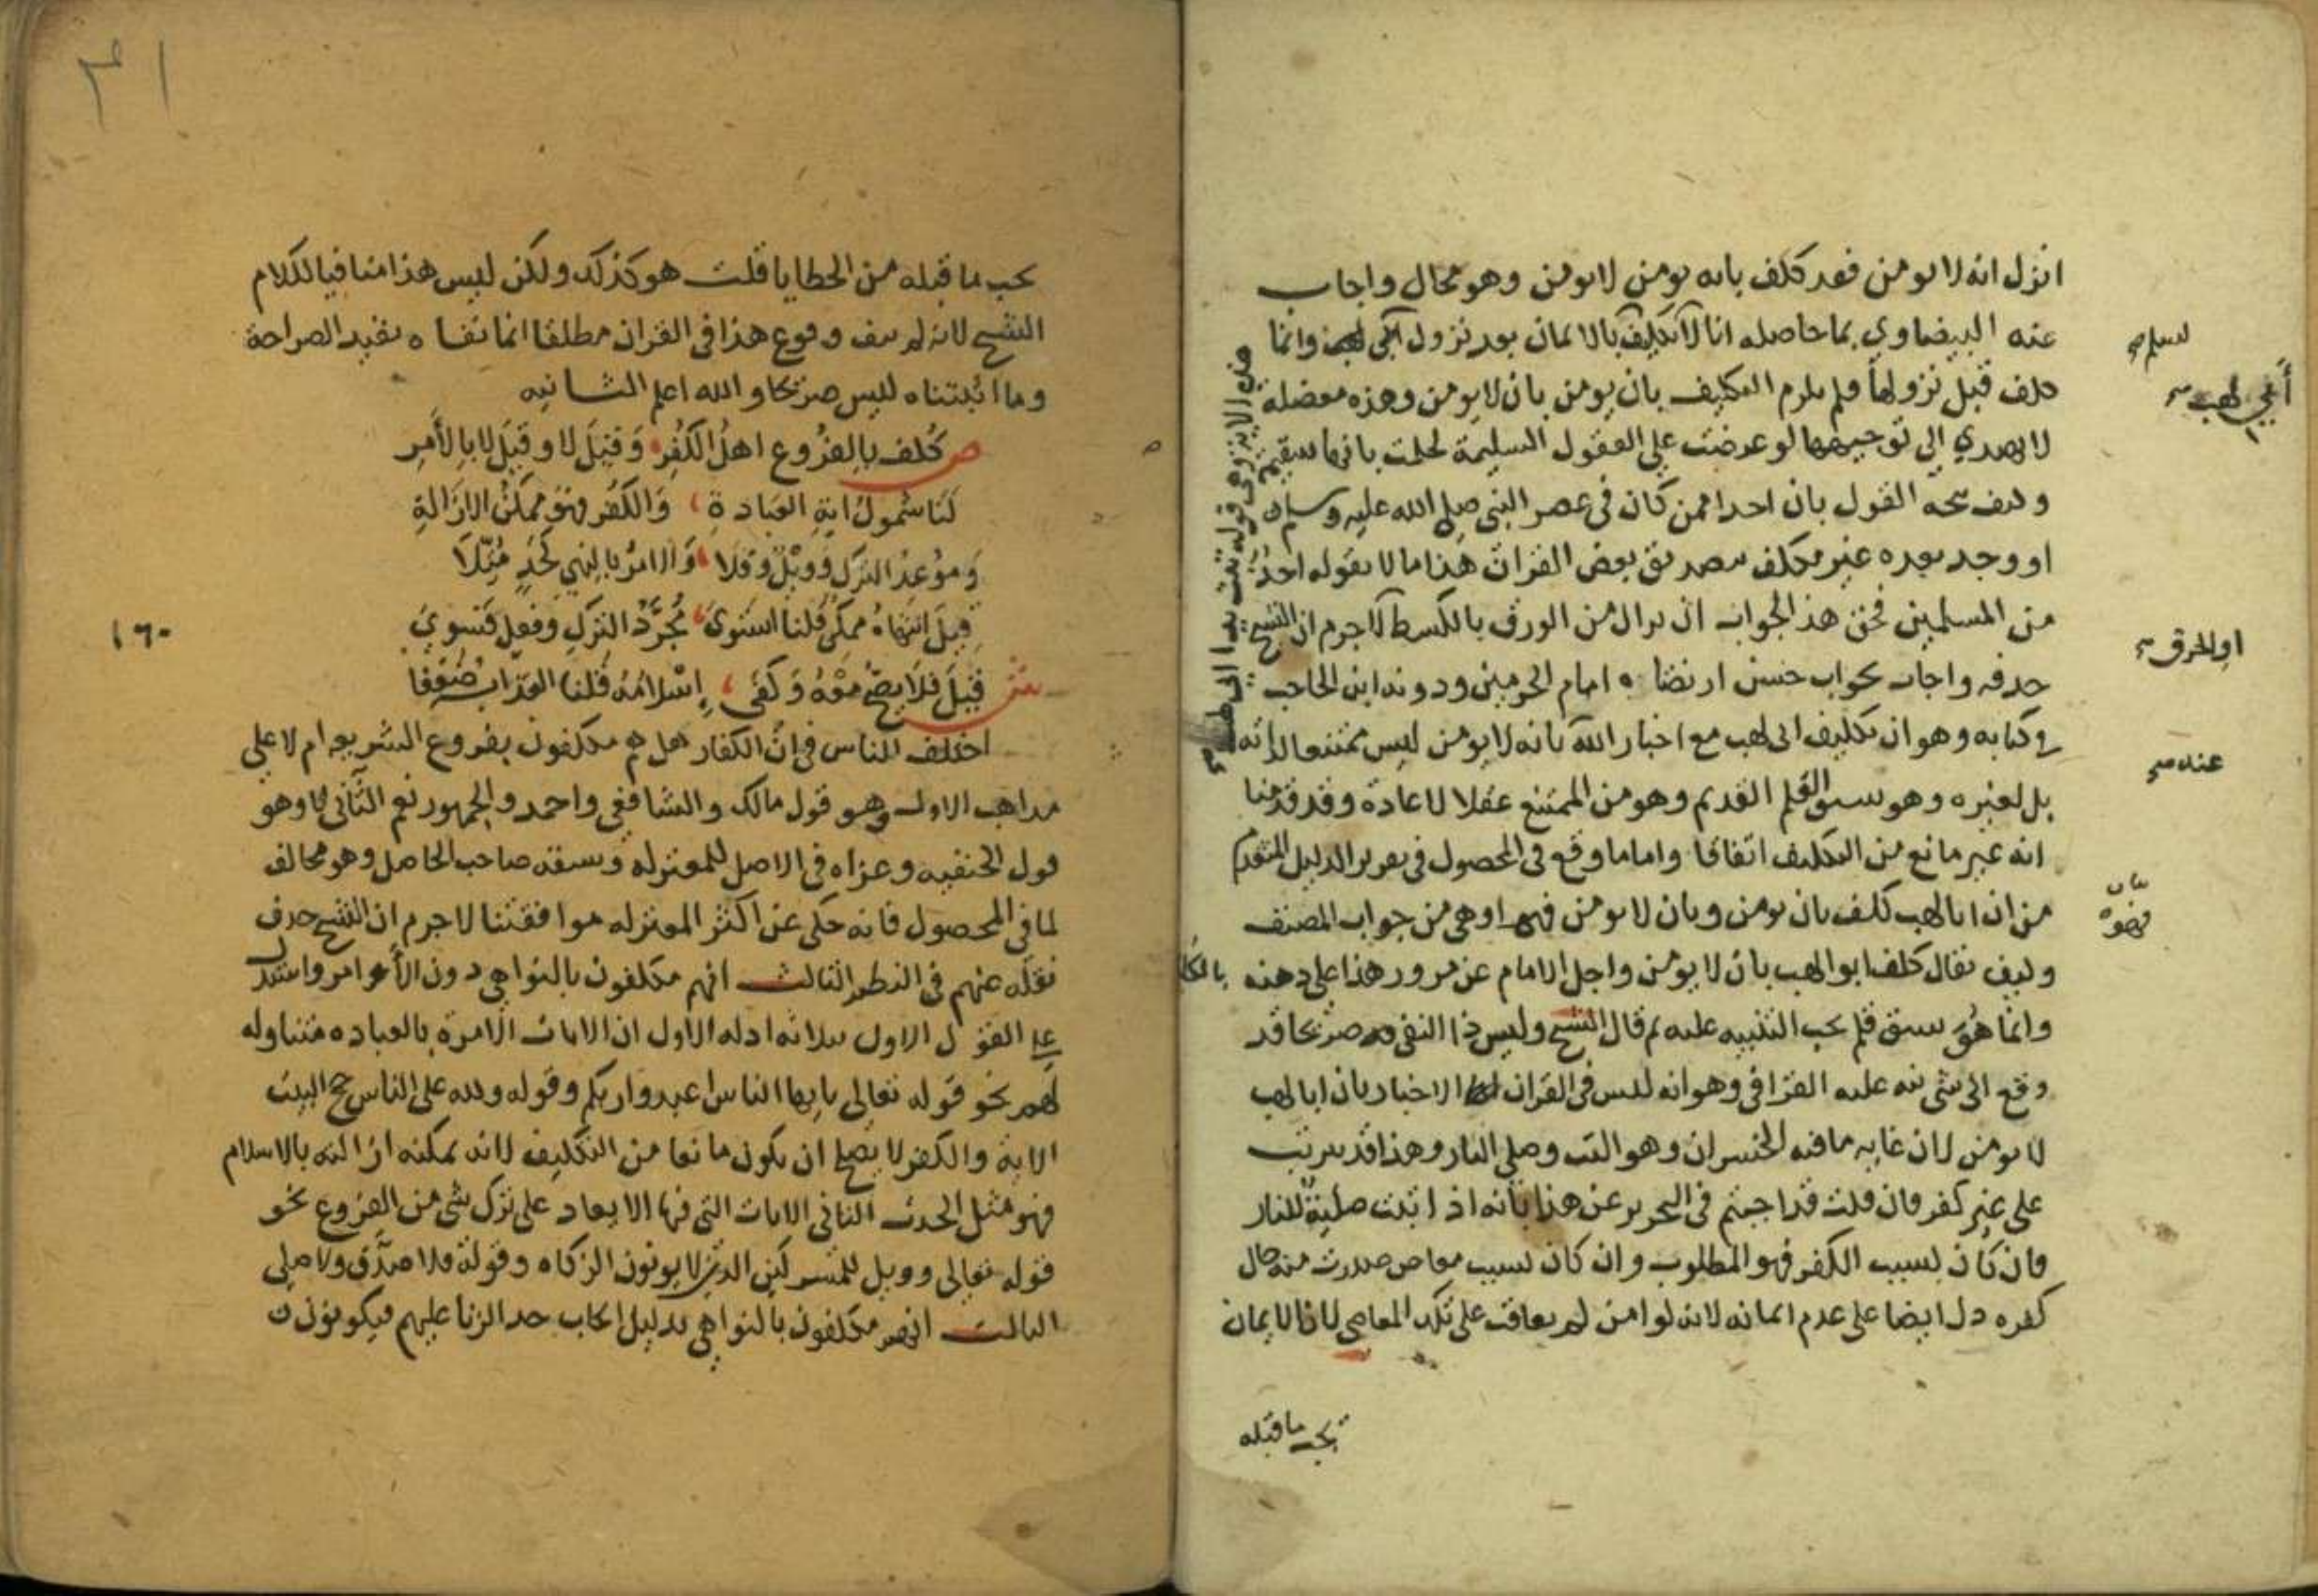 انزل انه لا يومن فقد كلف بانه يومن لا يومن وهو محال واجاب
عنه البيضاوي بما حاصله انا لا تكليف بالايمان بعد نزول وانما
كلف قبل نزولها فلم يلزم التكليف بان يومن بان لا يومن وهذه معضلة
لا يهتدي الي توجيهها لو عرضت علي العقول السليمة لحكمت بانها سقيمة
وكيف صحة القول بان احدا ممن كان في عصر النبي صلي الله عليه وسلم
او وجد بعده غير مكلف بتصديق بعض القران هذا ما لا يقوله احد
من المسلمين فحق هذ الجواب ان يزال من الورق بالكسط لا جرم ان الشيخ
حذفه واجاب بجواب حسن ارتضاه امام الحرمين ودونه ابن الحاجب
في كتابه وهو ان تكليف ابي لهب مع اخبار الله بانه لا يومن ليس ممتنعا لذاته
بل لغيره وهو سبق القلم القديم وهو من الممتنع عقلا لا عادة وقد قدمنا
انه غير مانع من التكليف اتفاقا واما ما وقع في المحصول في تقرير الدليل المتقدم
من ان ابا لهب كلف بان يومن وبان لا يومن فهو اوهي من جواب المصنف
وكيف يقال كلف ابو لهب بان لا يومن واجل الامام عن مرور هذا علي ذهنه
وانما هو سبق قلم يجب التنبيه عليه ثم قال الشيخ وليس ذا النفي به صريحا قد
وقع الي شي نبه عليه القرافي وهو انه ليس في القران الاخبار بان ابا لهب
لا يومن لان غاية ما فيه الخسران وهو التب وصلي النار وهذا قد يترتب
علي غير كفر فان قلت قد اجبتم في التحرير عن هذا بانه اذا ثبت صليه للنار
فان كان بسبب الكفر فهو المطلوب وان كان بسبب معاص صدرت منه حال
كفره دل ايضا علي عدم ايمانه لانه لو امن لم يعاقب علي تلك المعاصي لان الايمان
يجب ما قبله
نسلم
أعني لهب
او الحرق
عنده
بيان
فهو
٣١
يجب ما قبله من الخطايا قلت هو كذلك ولكن ليس هذا منافيا لكلام
الشيخ لانه لم ينف وقوع هذا في القران مطلقا انما نفاه بقيد الصراحة
وما اثبتناه ليس صريحا والله اعلم الثانيه
ص كُلف بالفروع اهل الكفر وقيل لا وقيل لا بالأمر
لنا شمول اية العبادة والكفر فهو ممكن الازالة
وموعد الترك فويل وفلا والامر بالنهي لحد مثلا
قيل انتهاه ممكن قلنا استوي مجرد الترك وفعل فتسوي
١٦٠
ش قيل فلا يصح معه وكفي إسلامه قلنا العذاب ضعفا
اختلف الناس في ان الكفار هل هم مكلفون بفروع الشريعه ام لا علي
مذاهب الاول وهو قول مالك والشافعي واحمد والجمهور نعم الثاني لا وهو
قول الحنفيه وعزاه في الاصل للمعتزله وسبقه صاحب الحاصل وهو مخالف
لما في المحصول فانه حكي عن اكثر المعتزله موافقتنا لا جرم ان الشيخ حذف
نقله عنهم في النظم الثالث انهم مكلفون بالنواهي دون الأوامر واستدل
علي القول الاول بثلاثه ادله الاول ان الايات الامرة بالعباده متناوله
لهم نحو قوله تعالي يا يها الناس اعبدوا ربكم وقوله ولله علي الناس حج البيت
الاية والكفر لا يصلح ان يكون مانعا من التكليف لانه يمكنه ازالته بالاسلام
فهو مثل الحدث الثاني الايات التي فيها الايعاد علي ترك شي من الفروع نحو
قوله تعالي وويل للمشركين الذين لا يوتون الزكاه وقوله فلا صدق ولا صلي
الثالث انهم مكلفون بالنواهي بدليل ايجاب حد الزنا عليهم فيكونون